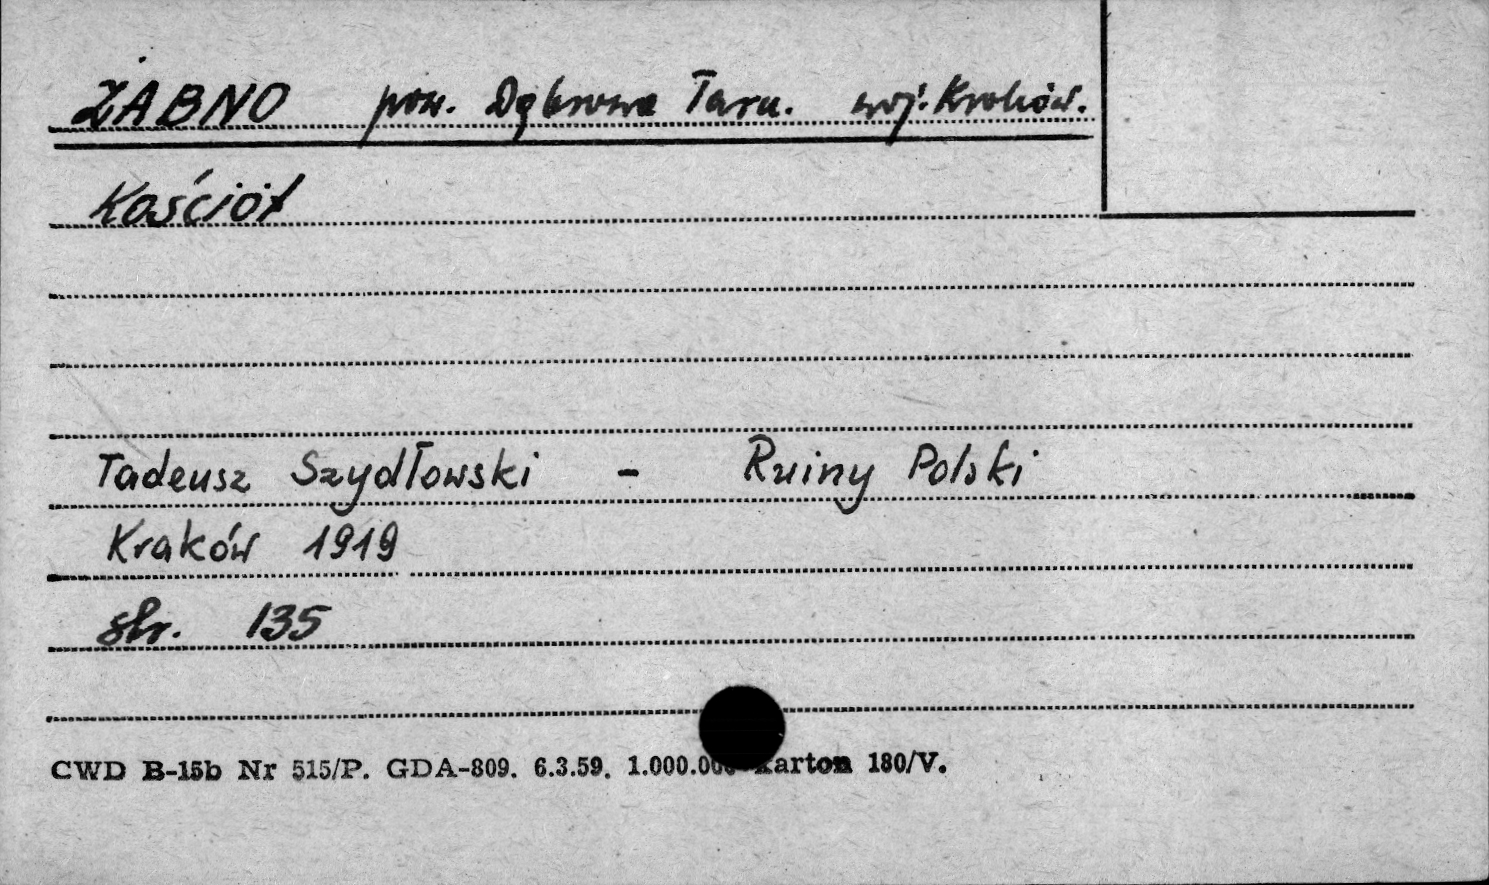 ŻABNO pow. Dąbrowa Tarn. woj. Kraków.
Kościół
Tadeusz Szydłowski - Ruiny Polski
Kraków 1919
str. 135
CWD B-15b Nr 515/P. GDA-809. 6.3.59. 1.000.000 Karton 180/V.